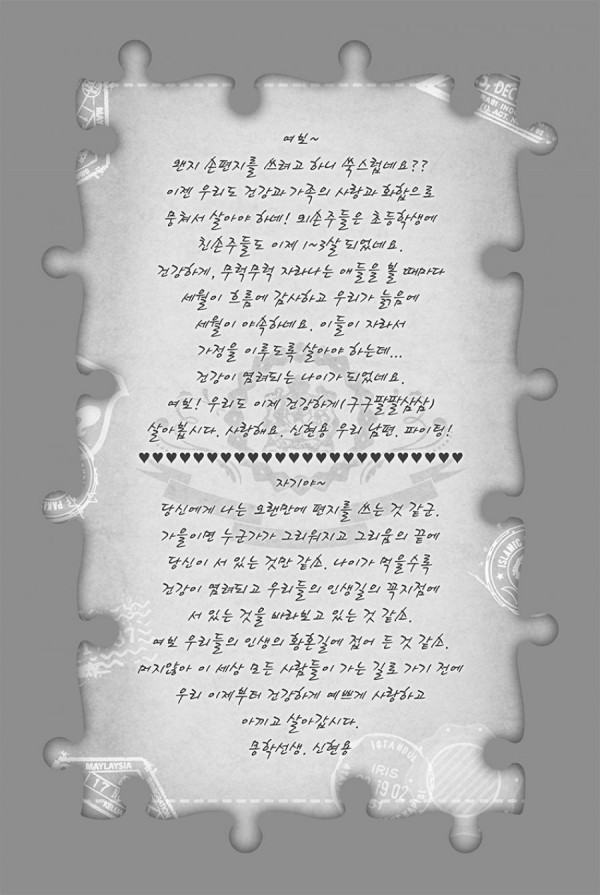 여보~
왠지 손편지를 쓰려고 하니 쑥스럽네요??
이젠 우리도 건강과 가족의 사랑과 화합으로
뭉쳐서 살아야 하네! 외손주들은 초등학생에
친손주들도 이제 1~3살 되었네요.
건강하게, 무럭무럭 자라나는 애들을 볼 때마다
세월이 흐름에 감사하고 우리가 늙음에
세월이 야속하네요. 이들이 자라서
가정을 이루도록 살아야 하는데...
건강이 염려되는 나이가 되었네요.
여보! 우리도 이제 건강하게(구구팔팔삼삼)
살아봅시다. 사랑해요. 신현용 우리 남편. 파이팅!
♥♥♥♥♥♥♥♥♥♥♥♥♥♥♥♥♥♥♥♥♥♥♥♥
자기야~
당신에게 나는 오랜만에 편지를 쓰는 것 같군.
가을이면 누군가가 그리워지고 그리움의 끝에
당신이 서 있는 것만 같소. 나이가 먹을수록
건강이 염려되고 우리들의 인생길의 꼭지점에
서 있는 것을 바라보고 있는 것 같소.
여보 우리들의 인생의 황혼길에 접어 든 것 같소.
머지않아 이 세상 모든 사람들이 가는 길로 가기 전에
우리 이제부터 건강하게 예쁘게 사랑하고
아끼고 살아갑시다.
몽학선생. 신현용
MAYLAYSIA
17
ISTANBUL
IRIS
1902
ISLAMIC
DEC